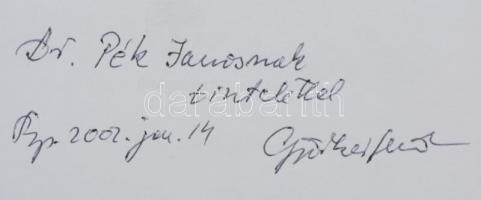 Dr. Pék Jánosnak
tisztelettel
Bp. 2002. jan. 14
darabanth